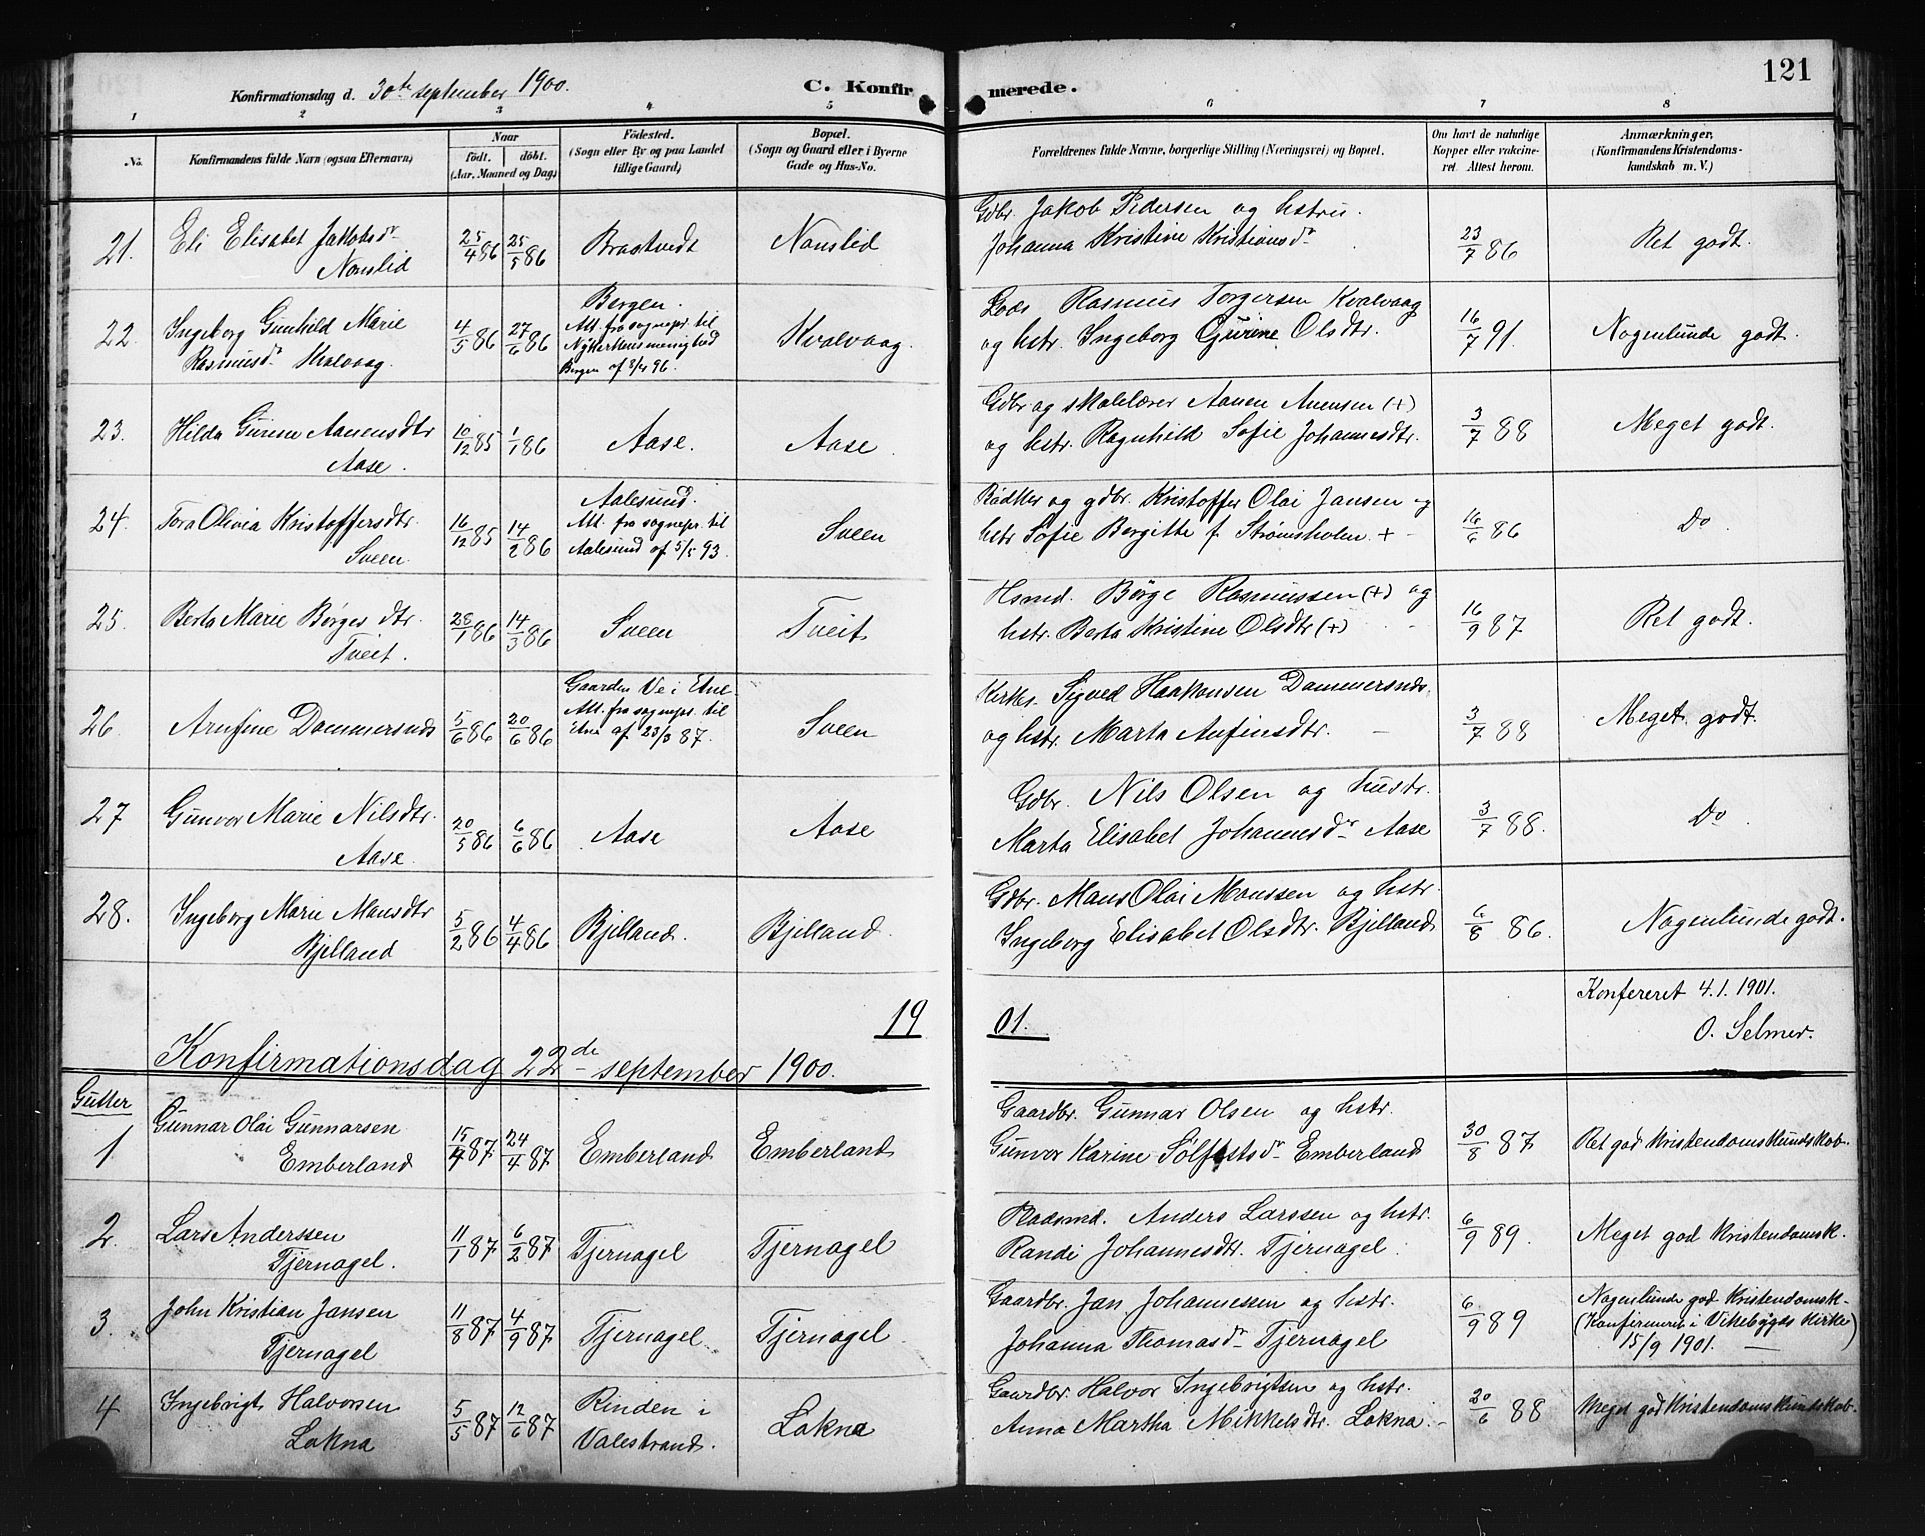 121
Konfirmationsdag d. 30te september 1900.
C. Konfirmerede.
1 2 3 4 5 6 7 8
No.
Konfirmandens fulde Navn (ogsaa Efternavn)
Naar
födt. döbt.
(Aar, Maaned og Dag)
Födested.
(Sogn eller By og paa Landet
tillige Gaard)
Bopæl.
(Sogn og Gaard eller i Byerne
Gade og Hus-No.
Forældrenes fulde Navne, borgerlige Stilling (Næringsvei) og Bopæl.
Om havt de naturlige
Kopper eller vakcine-
ret. Attest herom.
Anmærkninger,
(Konfirmandens Kristendoms-
kundskab m. V.)
21. Eli Elisabet Jakobsdr
Nonslid
25/4 86 25/5 86 Brastvedt Nonslid
Gdbr. Jakob Pedersen og hstru.
Johanna Kristine Kristiansdr
23/7 86 Ret godt.
22. Ingeborg Gunhild Marie
Rasmusdr Kvalvaag.
4/5 86 27/6 86
Bergen.
Att. fra sognepr. til
Nykirkens menighed
Bergen af 8/4 96.
Kvalvaag.
Lods Rasmus Torgersen Kvalvaag
og hstr. Ingeborg Gurine Olsdtr.
16/7 91. Nogenlunde godt.
23. Hilda Gurine Aanensdtr
Aase.
10/12 85 1/1 86 Aase. Aase.
Gdbr og skolelærer Aanen Anensen (+)
og hstr. Ragnhild Sofie Johannesdtr.
3/7 88 Meget godt.
24. Tora Olivia Kristoffersdtr.
Sveen.
16/12 85 14/2 86
Aalesund.
Att. fra sognepr. til
Aalesund af 5/5 93.
Sveen
Bödker og gdbr. Kristoffer Olai Jansen og
hstr Sofie Bergitte f. Strømsholm +
16/6 86 Do.
25. Berta Marie Børgesdtr.
Tveit.
28/1 86 14/3 86 Sveen Tveit
Hsmd. Børge Rasmussen (+) og
hstr. Berta Kristine Olsdtr (+)
16/9 87 Ret godt.
26. Arnfine Dommersnds
5/6 86 20/6 86
Gaarden Ve i Etne
Att. fra sognepr. til
Etne af 23/3 87.
Sveen
Kirkes. Sigved Haakonsen Dommersnds.
og hstr. Marta Anfinsdtr.
3/7 88 Meget godt.
27 Gunvor Marie Nilsdtr.
Aase.
20/5 86 6/6 86 Aase Aase
Gdbr. Nils Olsen og hustr.
Marta Elisabet Johannesdr Aase
3/7 88. Do.
28. Ingeborg Marie Monsdtr
Bjelland
5/2 86 4/4 86 Bjelland. Bjelland.
Gdbr. Mons Olai Monssen og hstr.
Ingeborg Elisabet Olsdtr. Bjelland
6/8 86. Nogenlunde godt.
Konfereret 4.1.1901.
O. Selmer.
19 01.
Konfirmationsdag 22de september 1900.
Gutter
1 Gunnar Olai Gunnarsen
Emberland
15/4 87 24/4 87 Emberland Emberland
Gaardbr. Gunnar Olsen og hstr.
Gunvor Karine Sølfestsdr Emberland
30/8 87 Ret god Kristendomskundskab.
2. Lars Anderssen
Tjernagel.
11/1 87 6/2 87 Tjernagel Tjernagel
Baadsmd. Anders Larssen og hstr.
Randi Johannesdtr. Tjernagel
6/9 89. Meget god kristendomsk.
3. John Kristian Jansen
Tjernagel
11/8 87 4/9 87 Tjernagel. Tjernagel
Gaardbr. Jan Johannessen og hstr.
Johanna Thomasdr Tjernagel
6/9 89
Nogenlunde god Kristendomsk.
(Konfirmeret i Vikebygds Kirke
15/9 1901.)
4 Ingebrigt Halvorsen
Lokna
5/5 87 12/6 87
Rinden i
Valestrand.
Lokna
Gaardbr. Halvor Ingebrigtsen og hstr.
Anna Martha Mikkelsdtr. Lokna.
20/6 88 Meget god Kristendomskundskab.